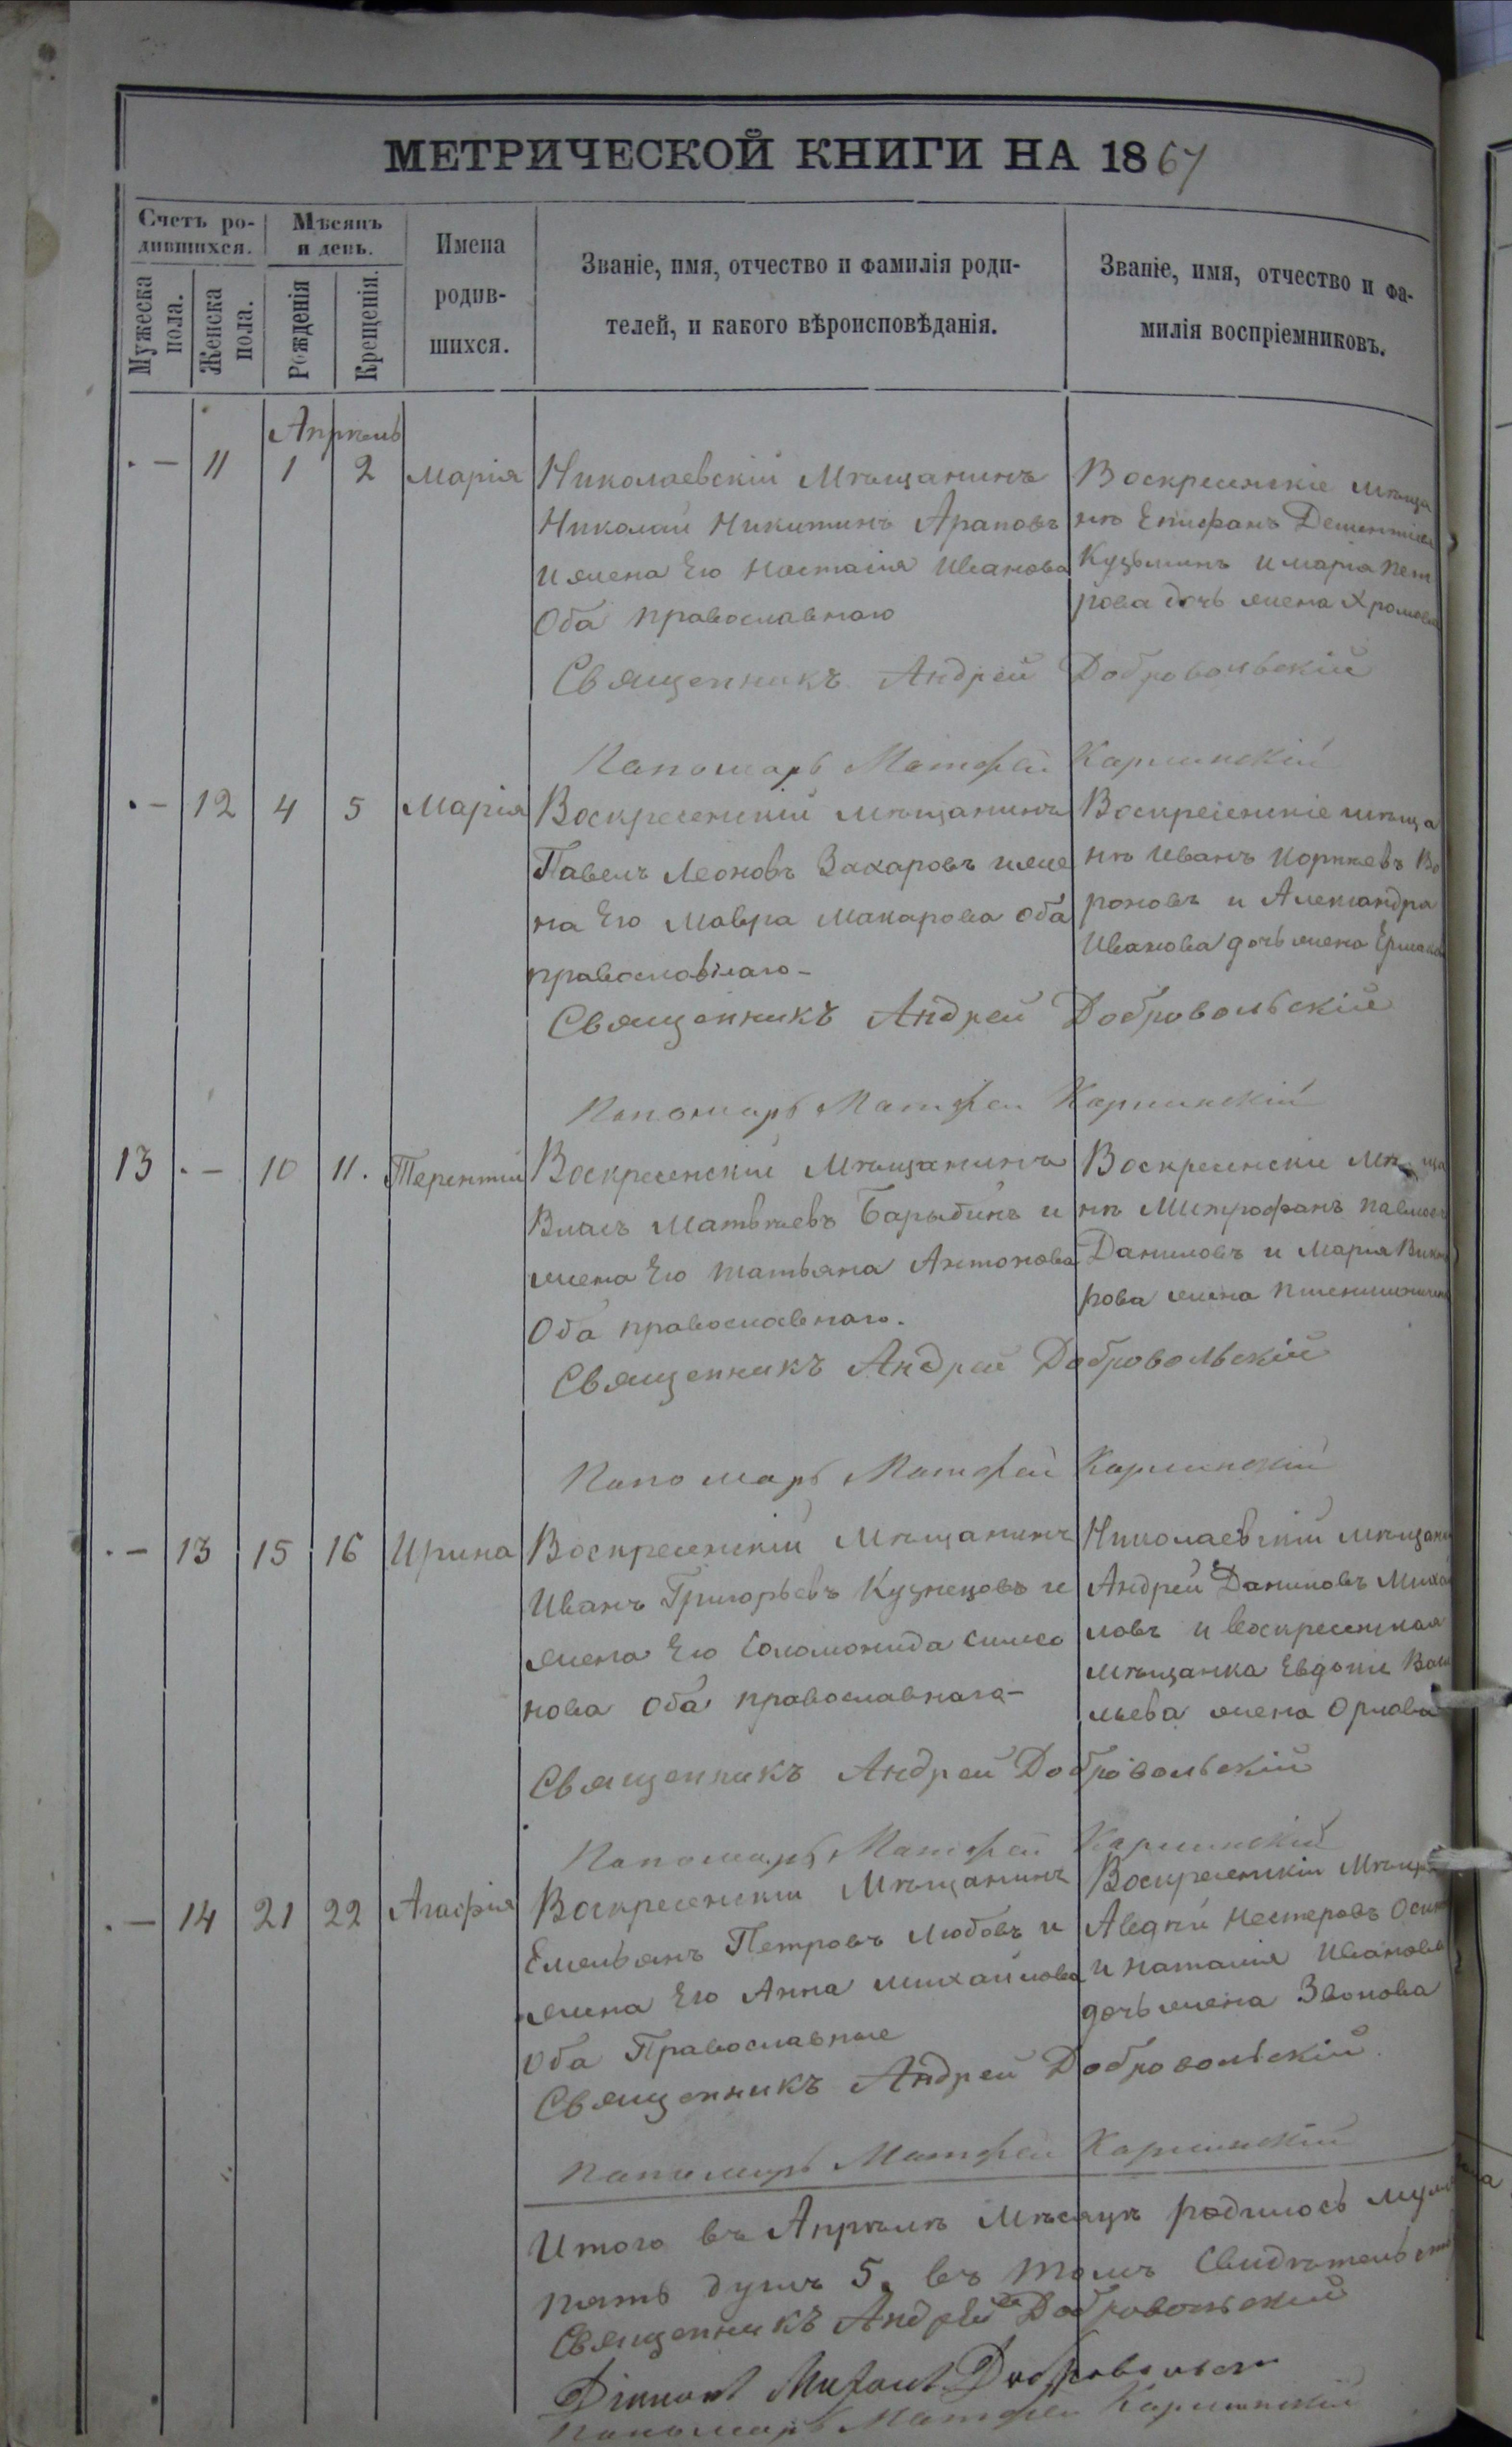 МЕТРИЧЕСКОЙ КНИГИ НА 1867
Счетъ ро-
дившихся.
Мѣсяцъ
и день.
Имена
родив-
шихся.
Званіе, имя, отчество и фамилія роди-
телей, и какого вѣроисповѣданія.
Званіе, имя, отчество и фа-
милія воспріемниковъ.
Мужеска
пола.
Женска
пола.
Рожденія
Крещенія.
Апрѣль
- 11 1 2 Марія
Николаевскій Мѣщанинъ
Николай Никитинъ Араповъ
и жена Его Настасія Иванова
Оба православнаго
Воскресенскіе мѣща
нѣ Епифанъ Дементіев
Кузьминъ и Марія Пет
рова дочь жена Хромова
Священникъ Андрей Добровольскій
Пономарь Матфей Карминскій
- 12 4 5 Марія
Воскресенскій мѣщанинъ
Павелъ Леоновъ Захаровъ и же
на Его Мавра Макарова оба
православнаго-
Воскресенскіе мѣща
нѣ Иванъ Корнеевъ Во
роновъ и Александра
Иванова дочь жена Ермакова
Священникъ Андрей Добровольскій
Пономарь Матфей Карминскій
13 - 10 11. Терентій
Воскресенскій Мѣщанинъ
Власъ Матвѣевъ Барыбинъ и
жена Его Татьяна Антонова
Оба православнаго.
Воскресенскіе Мѣща
нѣ Митрофанъ Павловъ
Даниловъ и Марія Викто
рова жена
Священникъ Андрей Добровольскій
Пономарь Матфей Карминскій
- 13 15 16 Ирина
Воскресенскій Мѣщанинъ
Иванъ Григорьевъ Кузнецовъ и
жена Его Соломонида Симео
нова Оба православнаго-
Николаевскій мѣщани
Андрей Даниловъ Михай
ловъ и Воскресенская
мѣщанка Евдокія Васи
льева жена Орлова
Священникъ Андрей Добровольскій
Пономарь Матфей Карминскій
- 14 21 22 Агафія
Воскресенскій Мѣщанинъ
Емельянъ Петровъ Любовъ и
жена Его Анна Михайлова
Оба Православные
Воскресенскій Мѣщан
Авдѣй Нестеровъ Осип
и Наталія Иванова
дочь жена Звонова
Священникъ Андрей Добровольскій.
Пономарь Матфей Карминскій
Итого въ Апрѣлѣ Мѣсяцѣ родилось
пять душъ 5. въ томъ Свидѣтельств
Священникъ Андрей Добровольскій
Діаконъ Добровольскій
Пономарь Матфей Карминскій